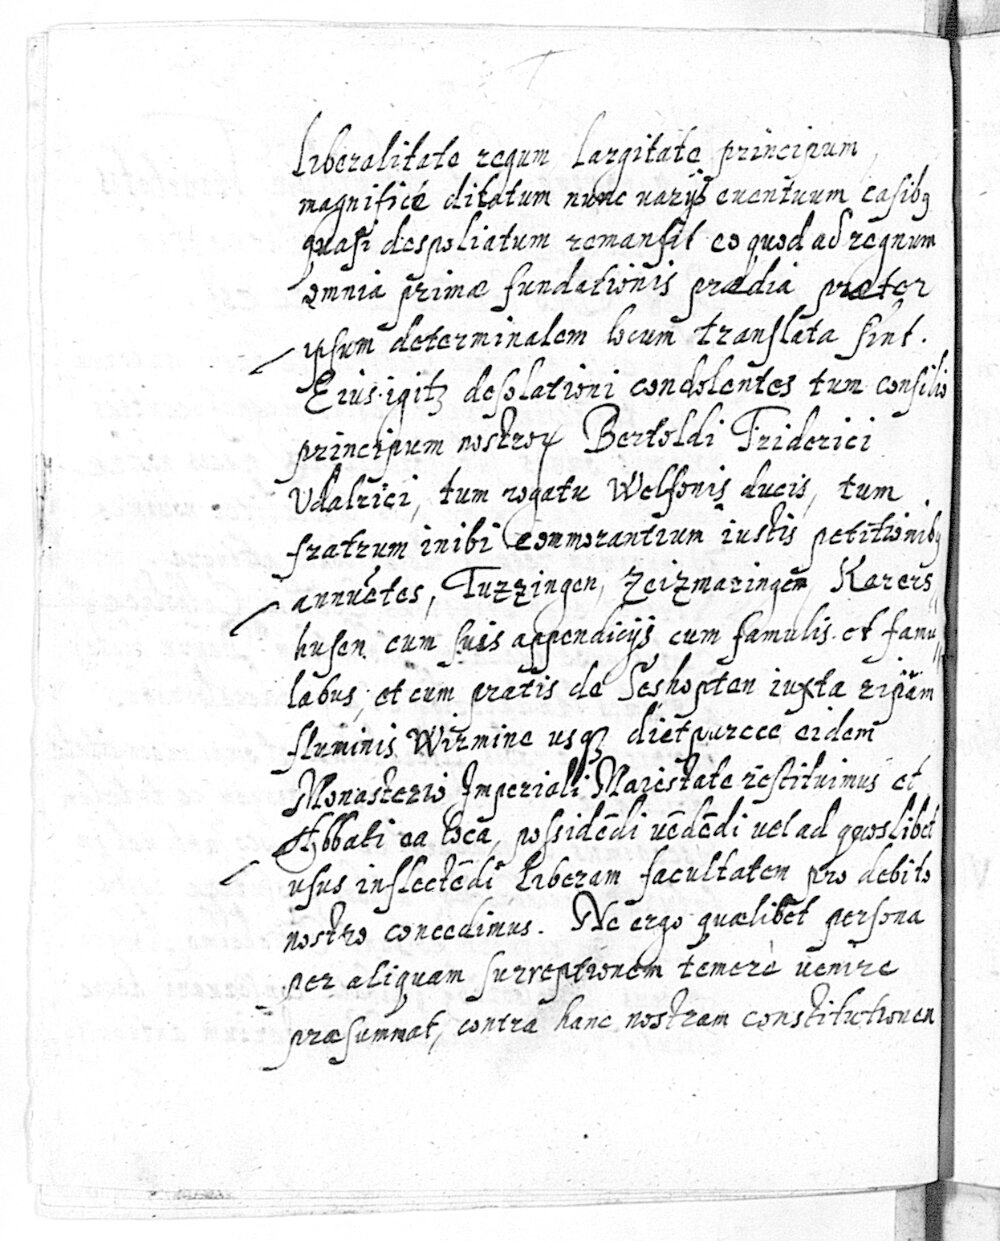 Liberalitate regum Largitate principum,
magnificè ditatum nunc varijs euentuum casibꝰ
quasi despoliatum remansit eo quod ad regnum
omnia primæ fundationis prædia præter
ipsum determinalem locum translata sint.
Eius igitꝫ desolationi condolentes tum consilio
principum nostroꝝ Bertoldi Friderici
Vdalrici, tum rogatu Welfonis ducis, tum
fratrum inibi commorantium iustis petitionibꝰ
annuētes, Tuzzingen, Zeizmaringen, Karers
husen cum suis appendicijs cum famulis et famu
labus, et cum pratis de Seshopten iuxta ripam
fluminis Wirmine usqꝫ dietpurcce eidem
Monasterio Imperiali Maiestate restituimus et
Abbati ea loca, possidēdi uēdēdi uel ad quoslibet
usus inflectēdi liberam facultatem pro debito
nostro concedimus. Ne ergo quælibet persona
per aliquam surreptionem temerè uenire
præsummat, contra hanc nostram constitutionen